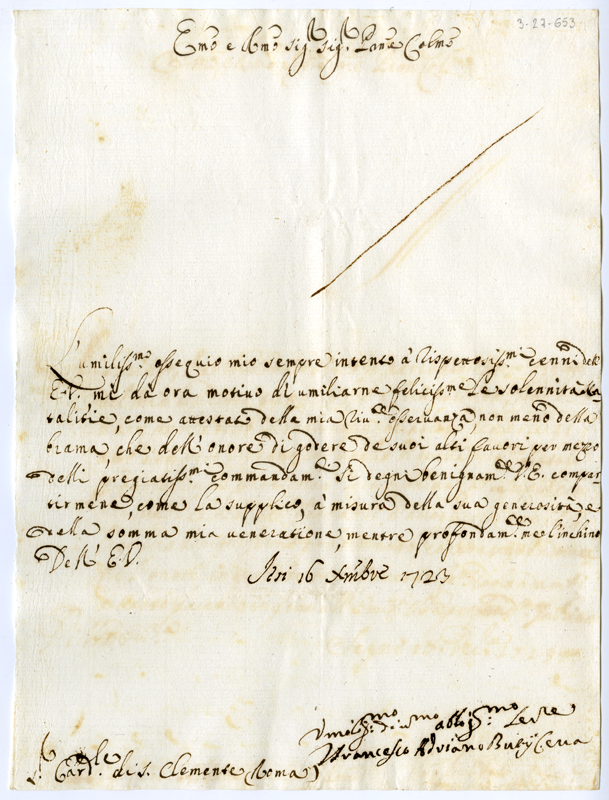 3-27-653
Emo e Rmo Sig.r Sig.r Pron̄e Colmo
L'umiliss.mo ossequio mio sempre intento à rispettosiss.mi cenni dell'
E.V. mi dà ora motivo di umiliarne felicissme le solennità Na-
talitie, come attestato della mia riv.ma osservanza, non meno della
brama, che dell'onore di godere de suoi alti favori per mezzo
delli pregiatiss.mi commandam.ti Si degni benignam.te V.E. compar-
tirmene, come la supplico, à misura della sua generosità, e
della somma mia veneratione, mentre profondam.te me l'inchino
Dell'E.V.
Iesi 16 Xmbre 1723
Umiliss.mo Di.mo obblig.mo Serre
Francesco Adriano
S.r Card.le di S. Clemente Roma)